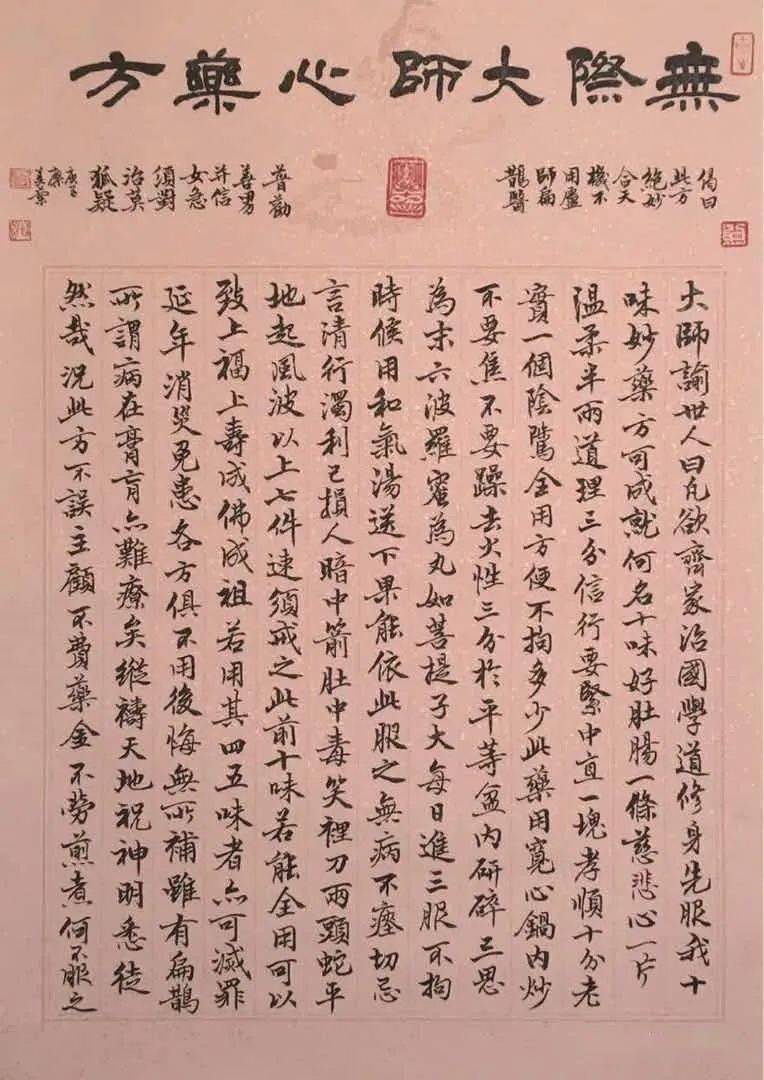 無際大師心藥方
偈曰
此方
絕妙
合天
機不
用盧
師扁
鵲醫
普勸
善男
并信
女急
須對
治莫
狐疑
大師諭世人曰凡欲齊家治國學道修身先服我十
味妙藥方可成就何名十味好肚腸一條慈悲心一片
溫柔半兩道理三分信行要緊中直一塊孝順十分老
實一個陰騭全用方便不拘多少此藥用寬心鍋內炒
不要焦不要躁去火性三分於平等盆內研碎三思
為末六波羅蜜為丸如菩提子大每日進三服不拘
時候用和氣湯送下果能依此服之無病不瘥切忌
言清行濁利己損人暗中箭肚中毒笑裡刀兩頭蛇平
地起風波以上七件速須戒之此前十味若能全用可以
致上福上壽成佛成祖若用其四五味者亦可滅罪
延年消災免患各方俱不用後悔無所補雖有扁鵲
所謂病在膏肓亦難療矣縱禱天地祝神明悉徒
然哉況此方不誤主顧不費藥金不勞煎煮何不服之